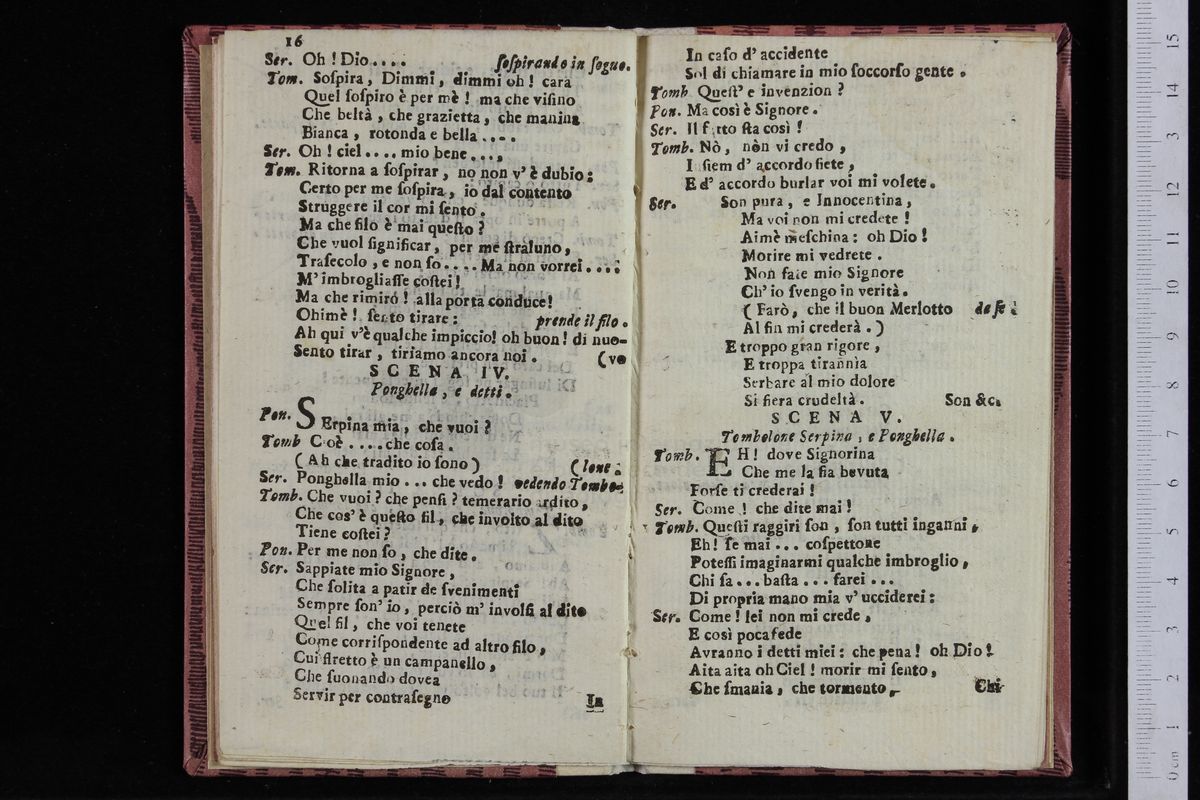 16
Ser. Oh ! Dio.... ſoſpirando in ſogno.
Tom. Soſpira, Dimmi, dimmi oh ! cara
Quel ſoſpiro è per mè ! ma che viſino
Che beltà, che grazietta, che manina
Bianca, rotonda e bella ....
Ser. Oh ! ciel .... mio bene ....
Tom. Ritorna a ſoſpirar, no non v'è dubio:
Certo per me ſoſpira, io dal contento
Struggere il cor mi ſento.
Ma che filo è mai queſto ?
Che vuol ſignificar, per me ſtraluno,
Traſecolo, e non ſo.... Ma non vorrei....
M'imbrogliaſſe coſtei!
Ma che rimiró ! alla porta conduce!
Ohimè ! ſento tirare : prende il filo.
Ah qui v'è qualche impiccio! oh buon! di nuo-
Sento tirar, tiriamo ancora noi. (vo
SCENA IV.
Ponghella, e detti.
Pon. SErpina mia, che vuoi ?
Tomb Coè ....che coſa.
(Ah che tradito io ſono) (lone.
Ser. Ponghella mio ... che vedo ! vedendo Tombo-
Tomb. Che vuoi ? che penſi ? temerario ardito,
Che cos'è queſto fil, che involto al dito
Tiene coſtei ?
Pon. Per me non ſo, che dite.
Ser. Sappiate mio Signore,
Che ſolita a patir de ſvenimenti
Sempre ſon' io, perciò m' involſi al dito
Quel fil, che voi tenete
Come corriſpondente ad altro filo,
Cui ſtretto è un campanello,
Che ſuonando dovea
Servir per contraſegno
In
In caſo d' accidente
Sol di chiamare in mio ſoccorſo gente.
Tomb Queſt' e invenzion ?
Pon. Ma così è Signore.
Ser. Il fatto ſta così !
Tomb. Nò, nòn vi credo,
Inſiem d' accordo ſiete,
E d' accordo burlar voi mi volete.
Ser. Son pura, e Innocentina,
Ma voi non mi credete !
Aimè meſchina: oh Dio !
Morire mi vedrete.
Non fate mio Signore
Ch' io ſvengo in verità.
( Farò, che il buon Merlotto da ſe
Al fin mi crederà.)
E troppo gran rigore,
E troppa tirannìa
Serbare al mio dolore
Si fiera crudeltà. Son &c.
SCENA V.
Tombolone Serpina, e Ponghella.
Tomb. EH! dove Signorina
Che me la fia bevuta
Forſe ti crederai !
Ser. Come ! che dite mai !
Tomb. Queſti raggiri ſon, ſon tutti inganni,
Eh! ſe mai ... coſpettone
Poteſſi imaginarmi qualche imbroglio,
Chi ſa... baſta ... farei ...
Di propria mano mia v' ucciderei:
Ser. Come ! lei non mi crede,
E così poca fede
Avranno i detti miei : che pena ! oh Dio !
Aita aita oh Ciel ! morir mi ſento,
Che ſmania, che tormento,
Chi